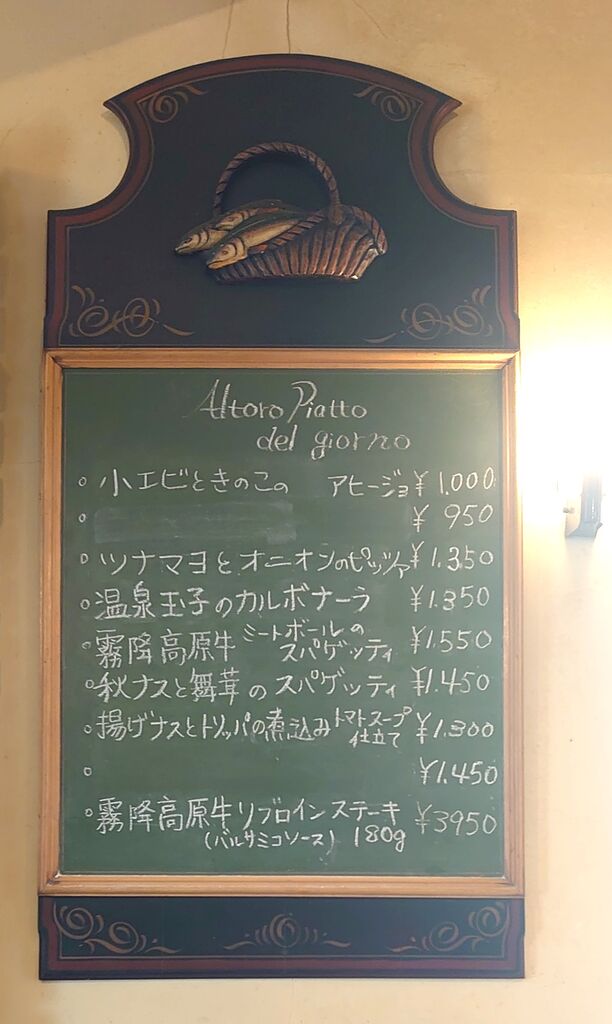 Altoro Piatto
del giorno
○ 小エビときのこの アヒージョ ¥ 1.000
○ ¥ 950
○ ツナマヨとオニオンのピッツァ ¥1.350
○ 温泉玉子のカルボナーラ ¥1.350
○ 霧降高原牛 ミートボールの スパゲッティ ¥1.550
○ 秋ナスと舞茸のスパゲッティ ¥1.450
○ 揚げナスとトリッパの煮込み トマトスープ仕立て ¥1.300
○ ¥1.450
○ 霧降高原牛リブロインステーキ ¥3950
(バルサミコソース) 180g